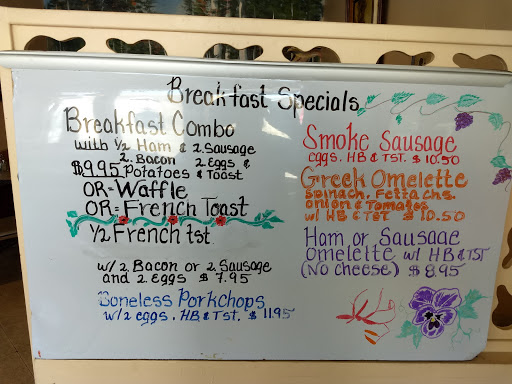 Breakfast Specials
Breakfast Combo
with 1/2 Ham & 2 Sausage
2 Bacon 2 Eggs &
$9.95 Potatoes & Toast
OR = Waffle
OR = French Toast
1/2 French tst
w/ 2 Bacon or 2 Sausage
and 2 eggs $ 7.95
Boneless Porkchops
w/ 2 eggs . HB & Tst. $ 11.95
Smoke Sausage
eggs. HB & TST. $ 10.50
Greek Omelette
Spinach. Fetta chs.
onion & Tomatoes
w/ HB & TST $ 10.50
Ham or Sausage
Omelette w/ HB & TST
(No cheese) $ 8.95